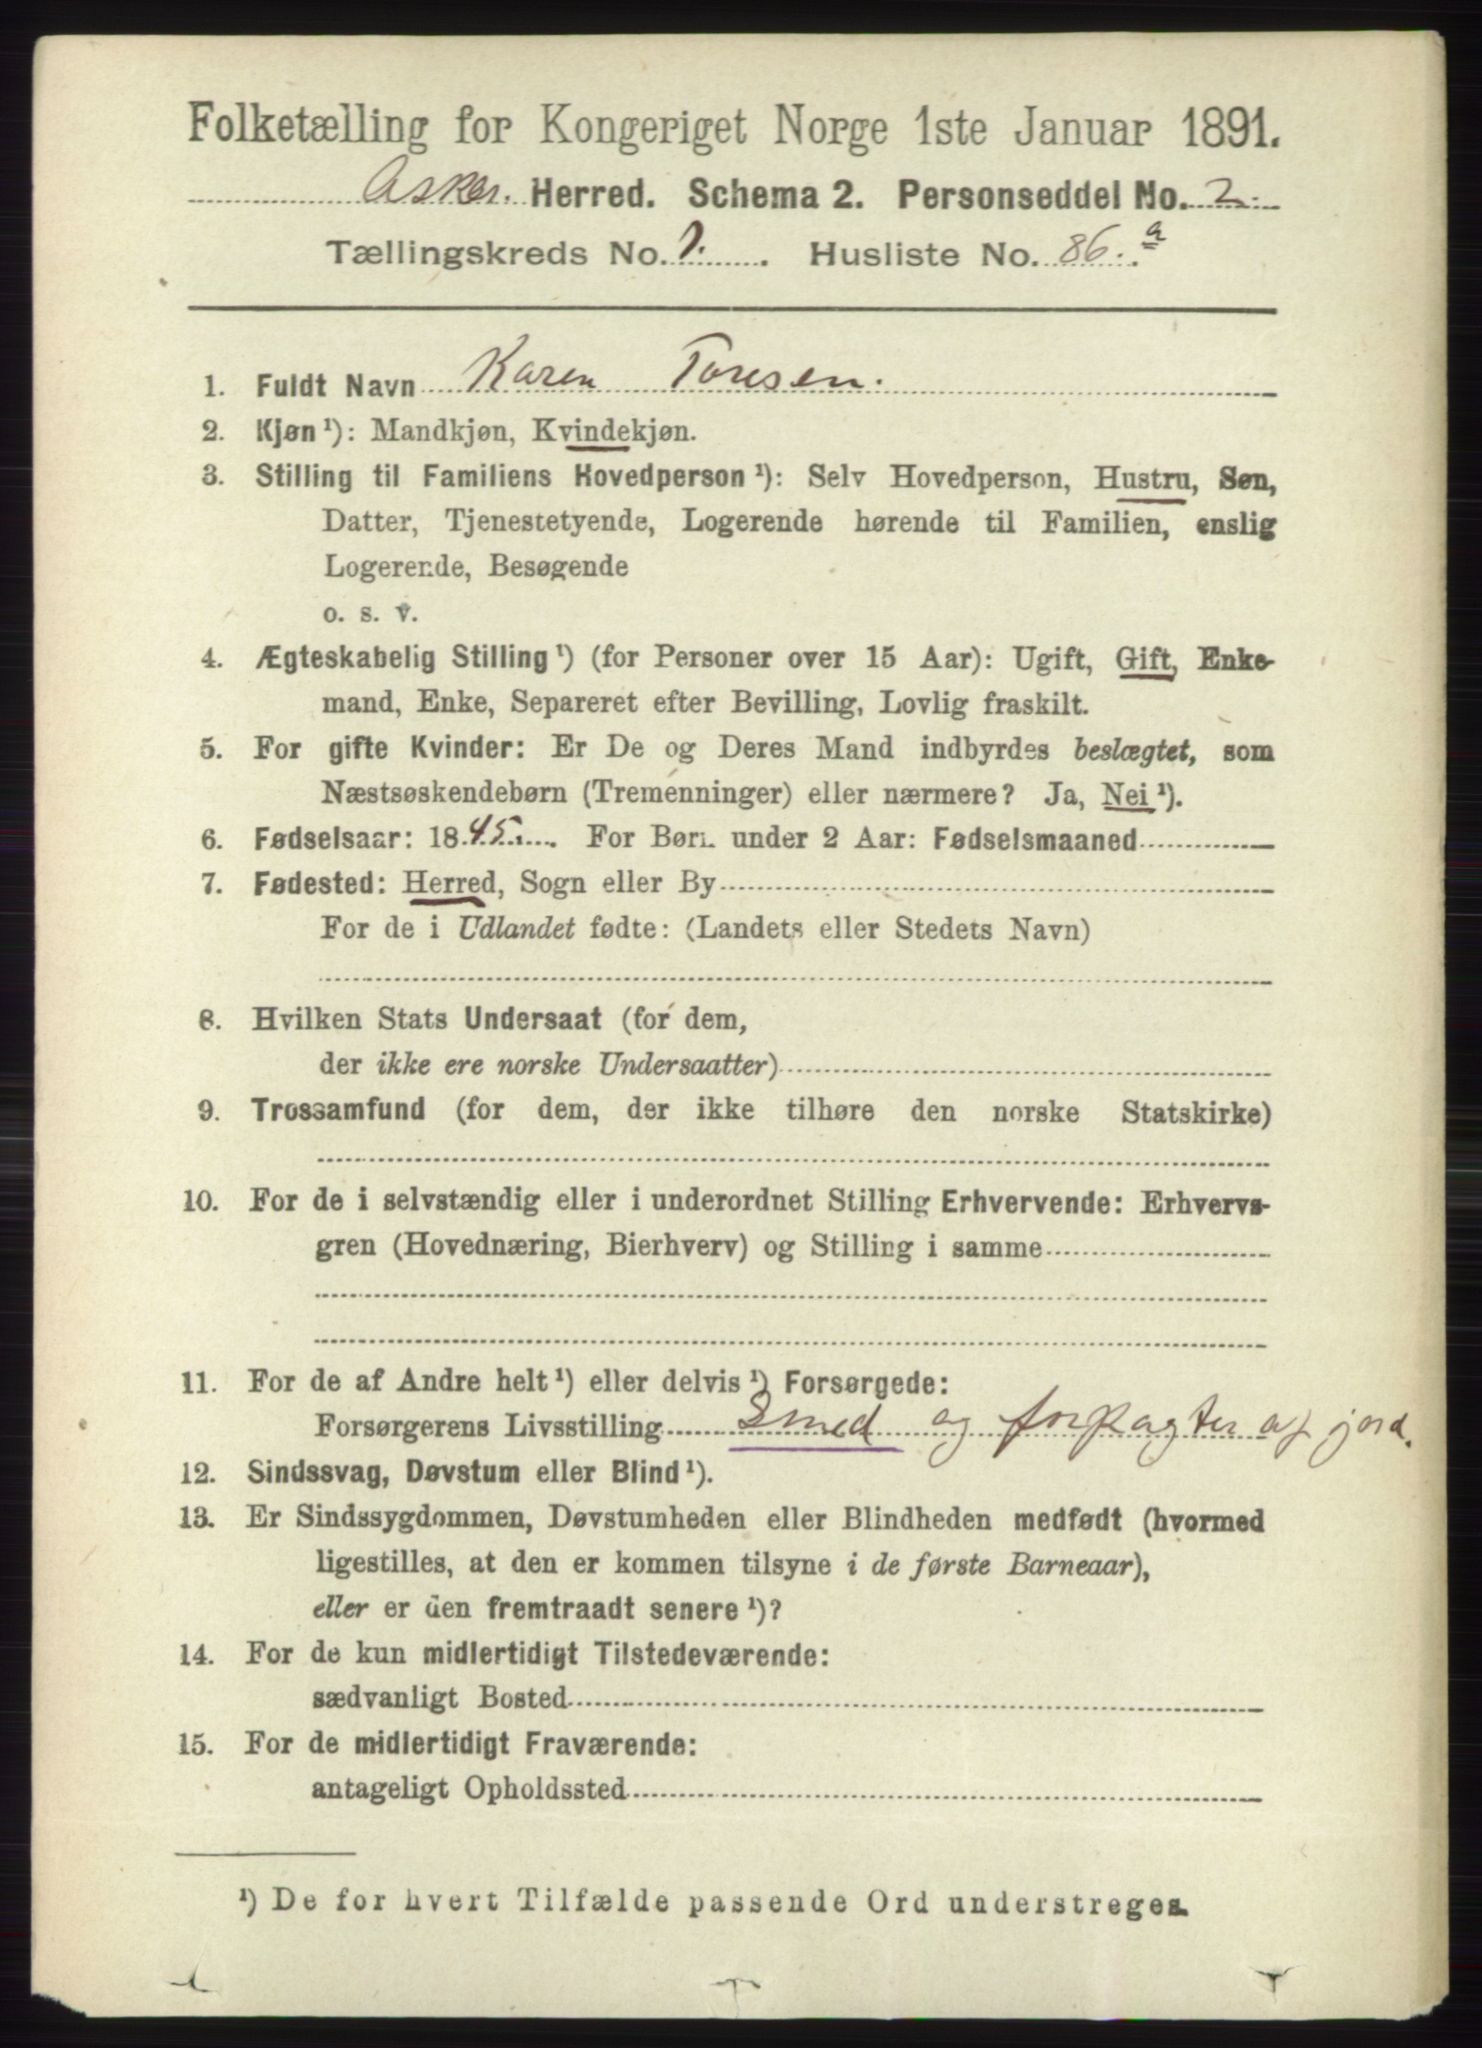 Folketælling for Kongeriget Norge 1ste Januar 1891.
Asker. Herred. Schema 2. Personseddel No. 2.
Tællingskreds No. 1. Husliste No. 86. a
1. Fuldt Navn Karen Toresen.
2. Kjøn ¹): Mandkjøn, Kvindekjøn.
3. Stilling til Familiens Hovedperson ¹): Selv Hovedperson, Hustru, Søn,
Datter, Tjenestetyende, Logerende hørende til Familien, enslig
Logerende, Besøgende
o. s. v.
4. Ægteskabelig Stilling ¹) (for Personer over 15 Aar): Ugift, Gift, Enke-
mand, Enke, Separeret efter Bevilling, Lovlig fraskilt.
5. For gifte Kvinder: Er De og Deres Mand indbyrdes beslægtet, som
Næstsøskendebørn (Tremenninger) eller nærmere? Ja, Nei ¹).
6. Fødselsaar: 1845. For Børn under 2 Aar: Fødselsmaaned
7. Fødested: Herred, Sogn eller By
For de i Udlandet fødte: (Landets eller Stedets Navn)
8. Hvilken Stats Undersaat (for dem,
der ikke ere norske Undersaatter)
9. Trossamfund (for dem, der ikke tilhøre den norske Statskirke)
10. For de i selvstændig eller i underordnet Stilling Erhvervende: Erhvervs-
gren (Hovednæring, Bierhverv) og Stilling i samme
11. For de af Andre helt ¹) eller delvis ¹) Forsørgede:
Forsørgerens Livsstilling Smed og forpagter af jord.
12. Sindssvag, Døvstum eller Blind ¹).
13. Er Sindssygdommen, Døvstumheden eller Blindheden medfødt (hvormed
ligestilles, at den er kommen tilsyne i de første Barneaar),
eller er den fremtraadt senere ¹)?
14. For de kun midlertidigt Tilstedeværende:
sædvanligt Bosted
15. For de midlertidigt Fraværende:
antageligt Opholdssted
¹) De for hvert Tilfælde passende Ord understreges.